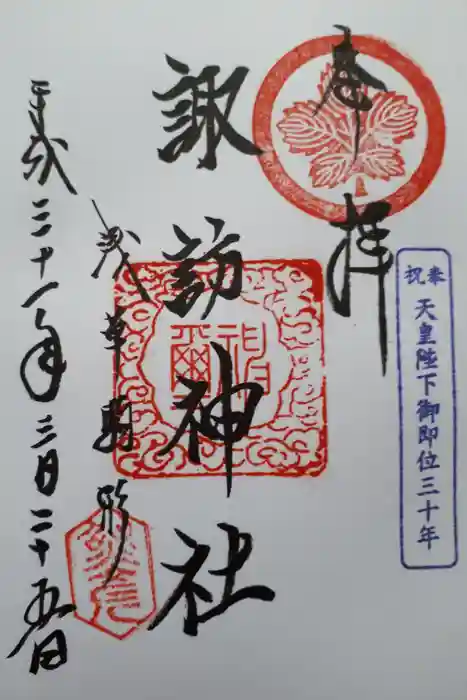 奉拝
奉祝
天皇陛下御即位三十年
諏訪神社
神璽
浅草駒形
平成三十一年三月二十五日